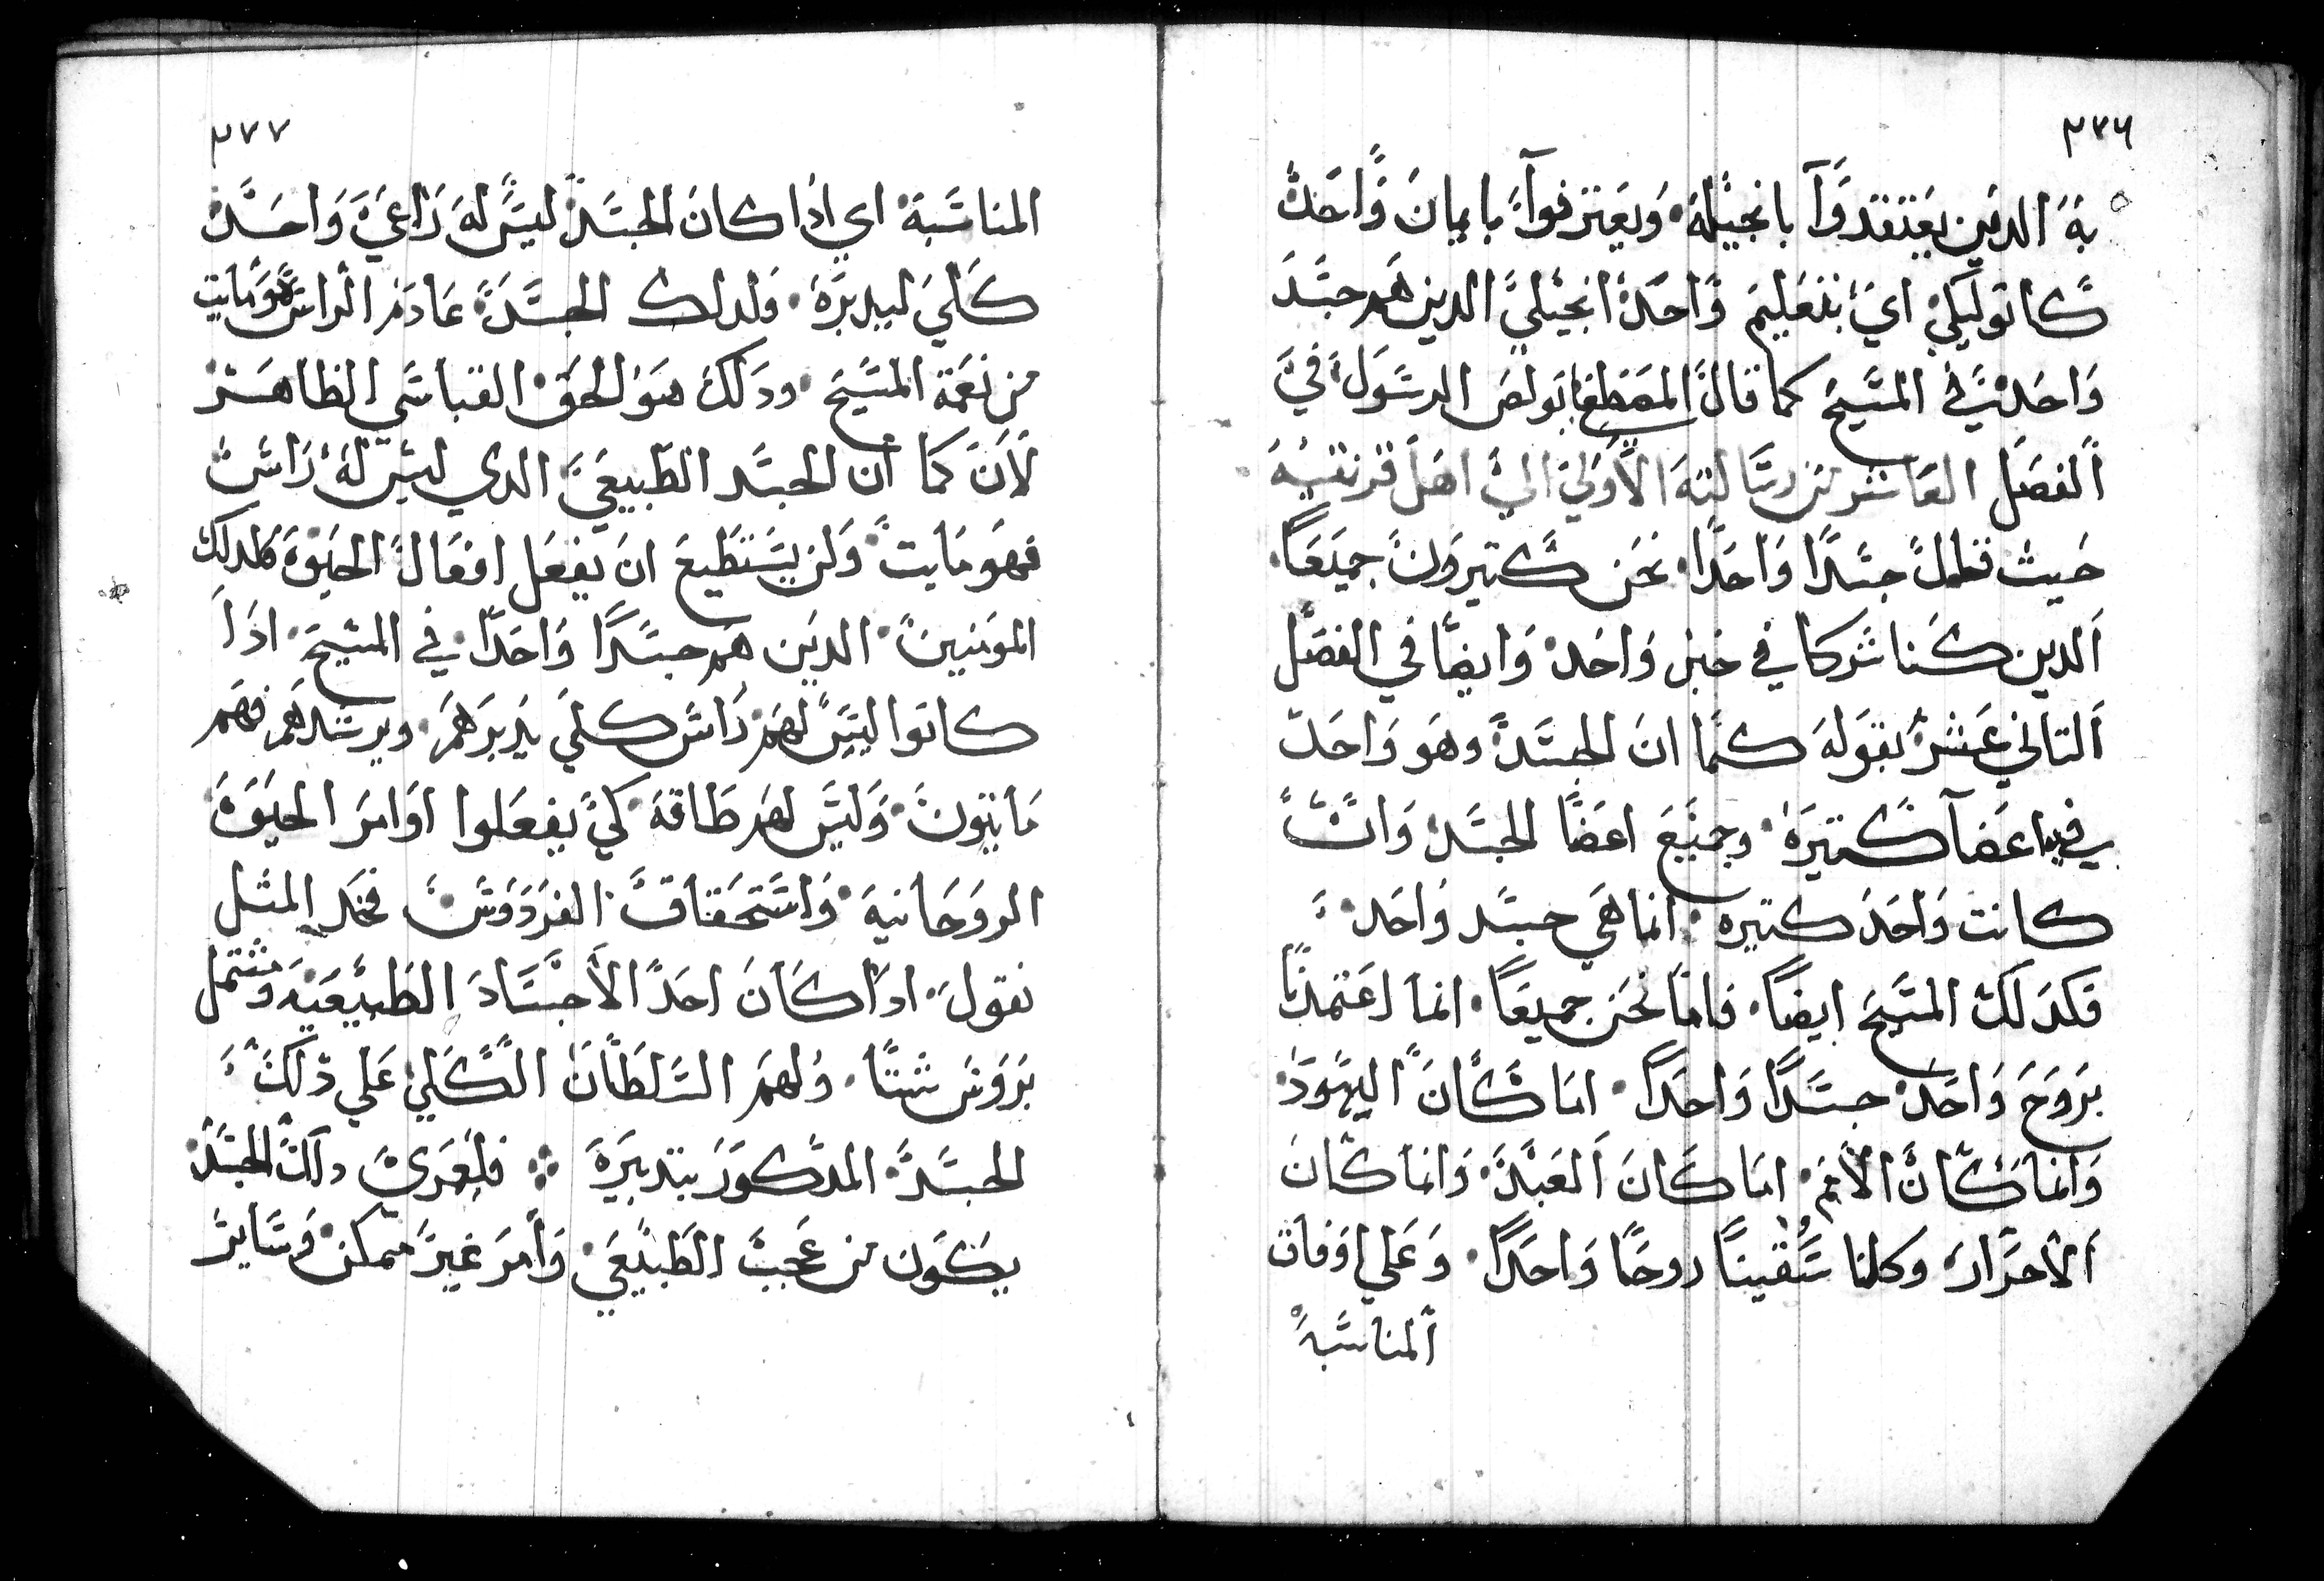 ٢٧٦
به الدين يعتقدوا بانجيله. ويعترفوا بايمان واحد
كاتوليكي اي بتعليم واحد انجيلي الدين هم جسد
واحد في المسيح كما قال المصطفا بولص الرسول في
الفصل العاشر من رسالته الاولي الي اهل قرنتيه
حيث قلم جسدا واحدا. نحن كتيرون جميعا.
الدين كنا شركا في خبز واحد وايضا في الفصل
التاني عشر بقوله كما ان الجسد وهو واحد
في فيه اعضآ كتيرة. وجميع اعضا الجسد وان
كانت واحد كتيره. انما هي جسد واحد.
فكدلك المسيح ايضا. فاما نحن جميعا. انما اعتمدنا
بروح واحد جسدا واحدا. اما كان اليهود
وانما كان الامم. اما كان العبد. وانما كان
الاحرار وكلنا سقينا روحا واحدا. وعلي اوفاق
المناسبه
٢٧٧
المناسبة. اي ادا كان الجسد ليس له راعي واحد
كلي ليدبره. ولدلك الجسد عادم الراس هو مايت
من نعمة المسيح. ودلك هو الحق القياسي الظاهر
لان كما ان الجسد الطبيعي الدي ليس له راس
فهو مايت ولن يستطيع ان يفعل افعال الحيوة كدلك
المومنين. الدين هم جسدا واحدا. في المسيح. ادا
كانوا ليس لهم راس كلي يدبرهم. ويرشدهم فهم
مايتون. وليس لهم طاقة كي يفعلوا اوامر الحيوة
الروحانية. واستحقاق الفردوس فخد المثل
نقول. ادا كان احد الاجساد الطبيعيه ومشتمل
بروس شتا. ولهم السلطان الكلي علي دلك
الجسد المدكور بتدبيره ⁘ فلعمري دلك الجسد
يكون من عجب الطبيعي. وامر غير ممكن. وساير